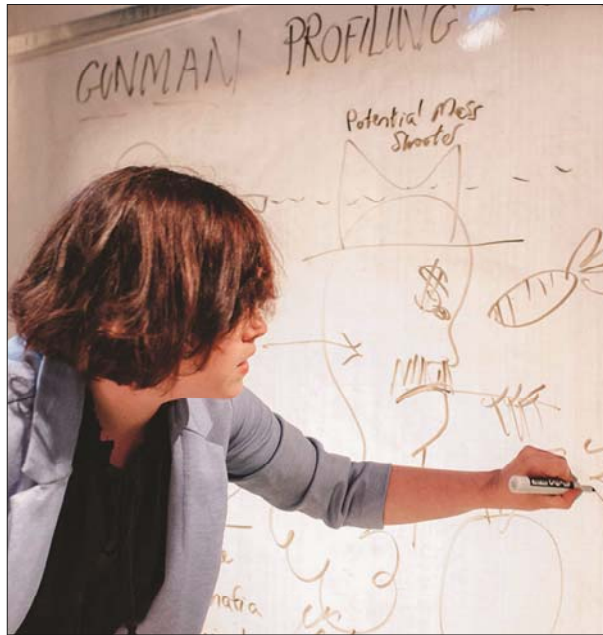 GUNMAN PROFILING
Potential Mass
Shooter
$
mafia